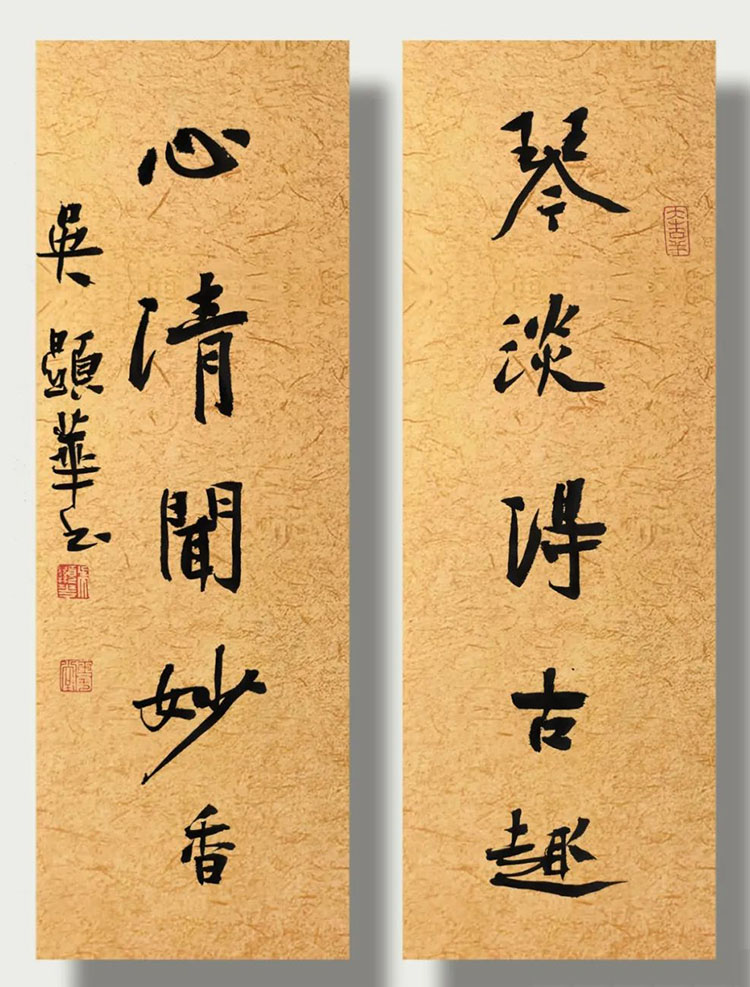 琴淡得古趣
心清聞妙香
吳顯華书